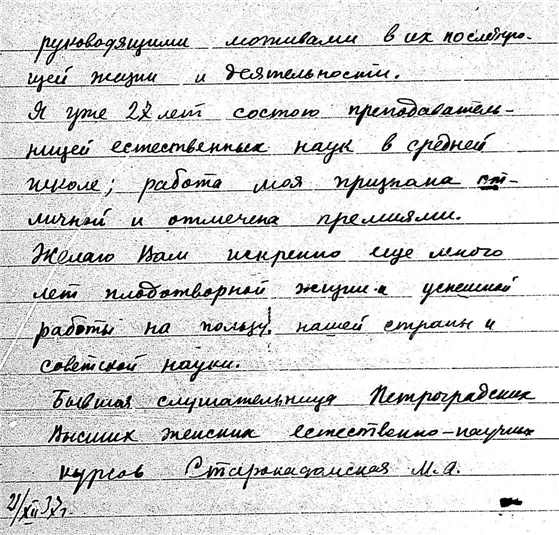 руководящими мотивами в их последую-
щей жизни и деятельности.
Я уже 27 лет состою преподаватель-
ницей естественных наук в средней
школе; работа моя признана от-
личной и отмечена премиями.
Желаю Вам искренно еще много
лет плодотворной жизни и успешной
работы на пользу нашей страны и
советской науки.
Бывшая слушательница Петроградских
Высших женских естественно-научных
курсов Старокадомская М.А.
21/XII 37г.